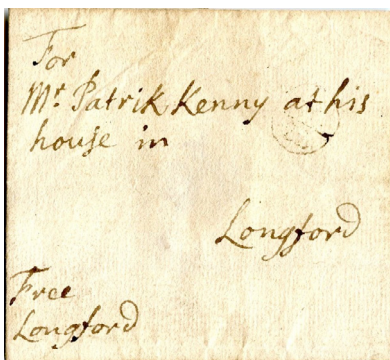 For
Mr. Patrik Kenny at his
house in
Longford
Free
Longford